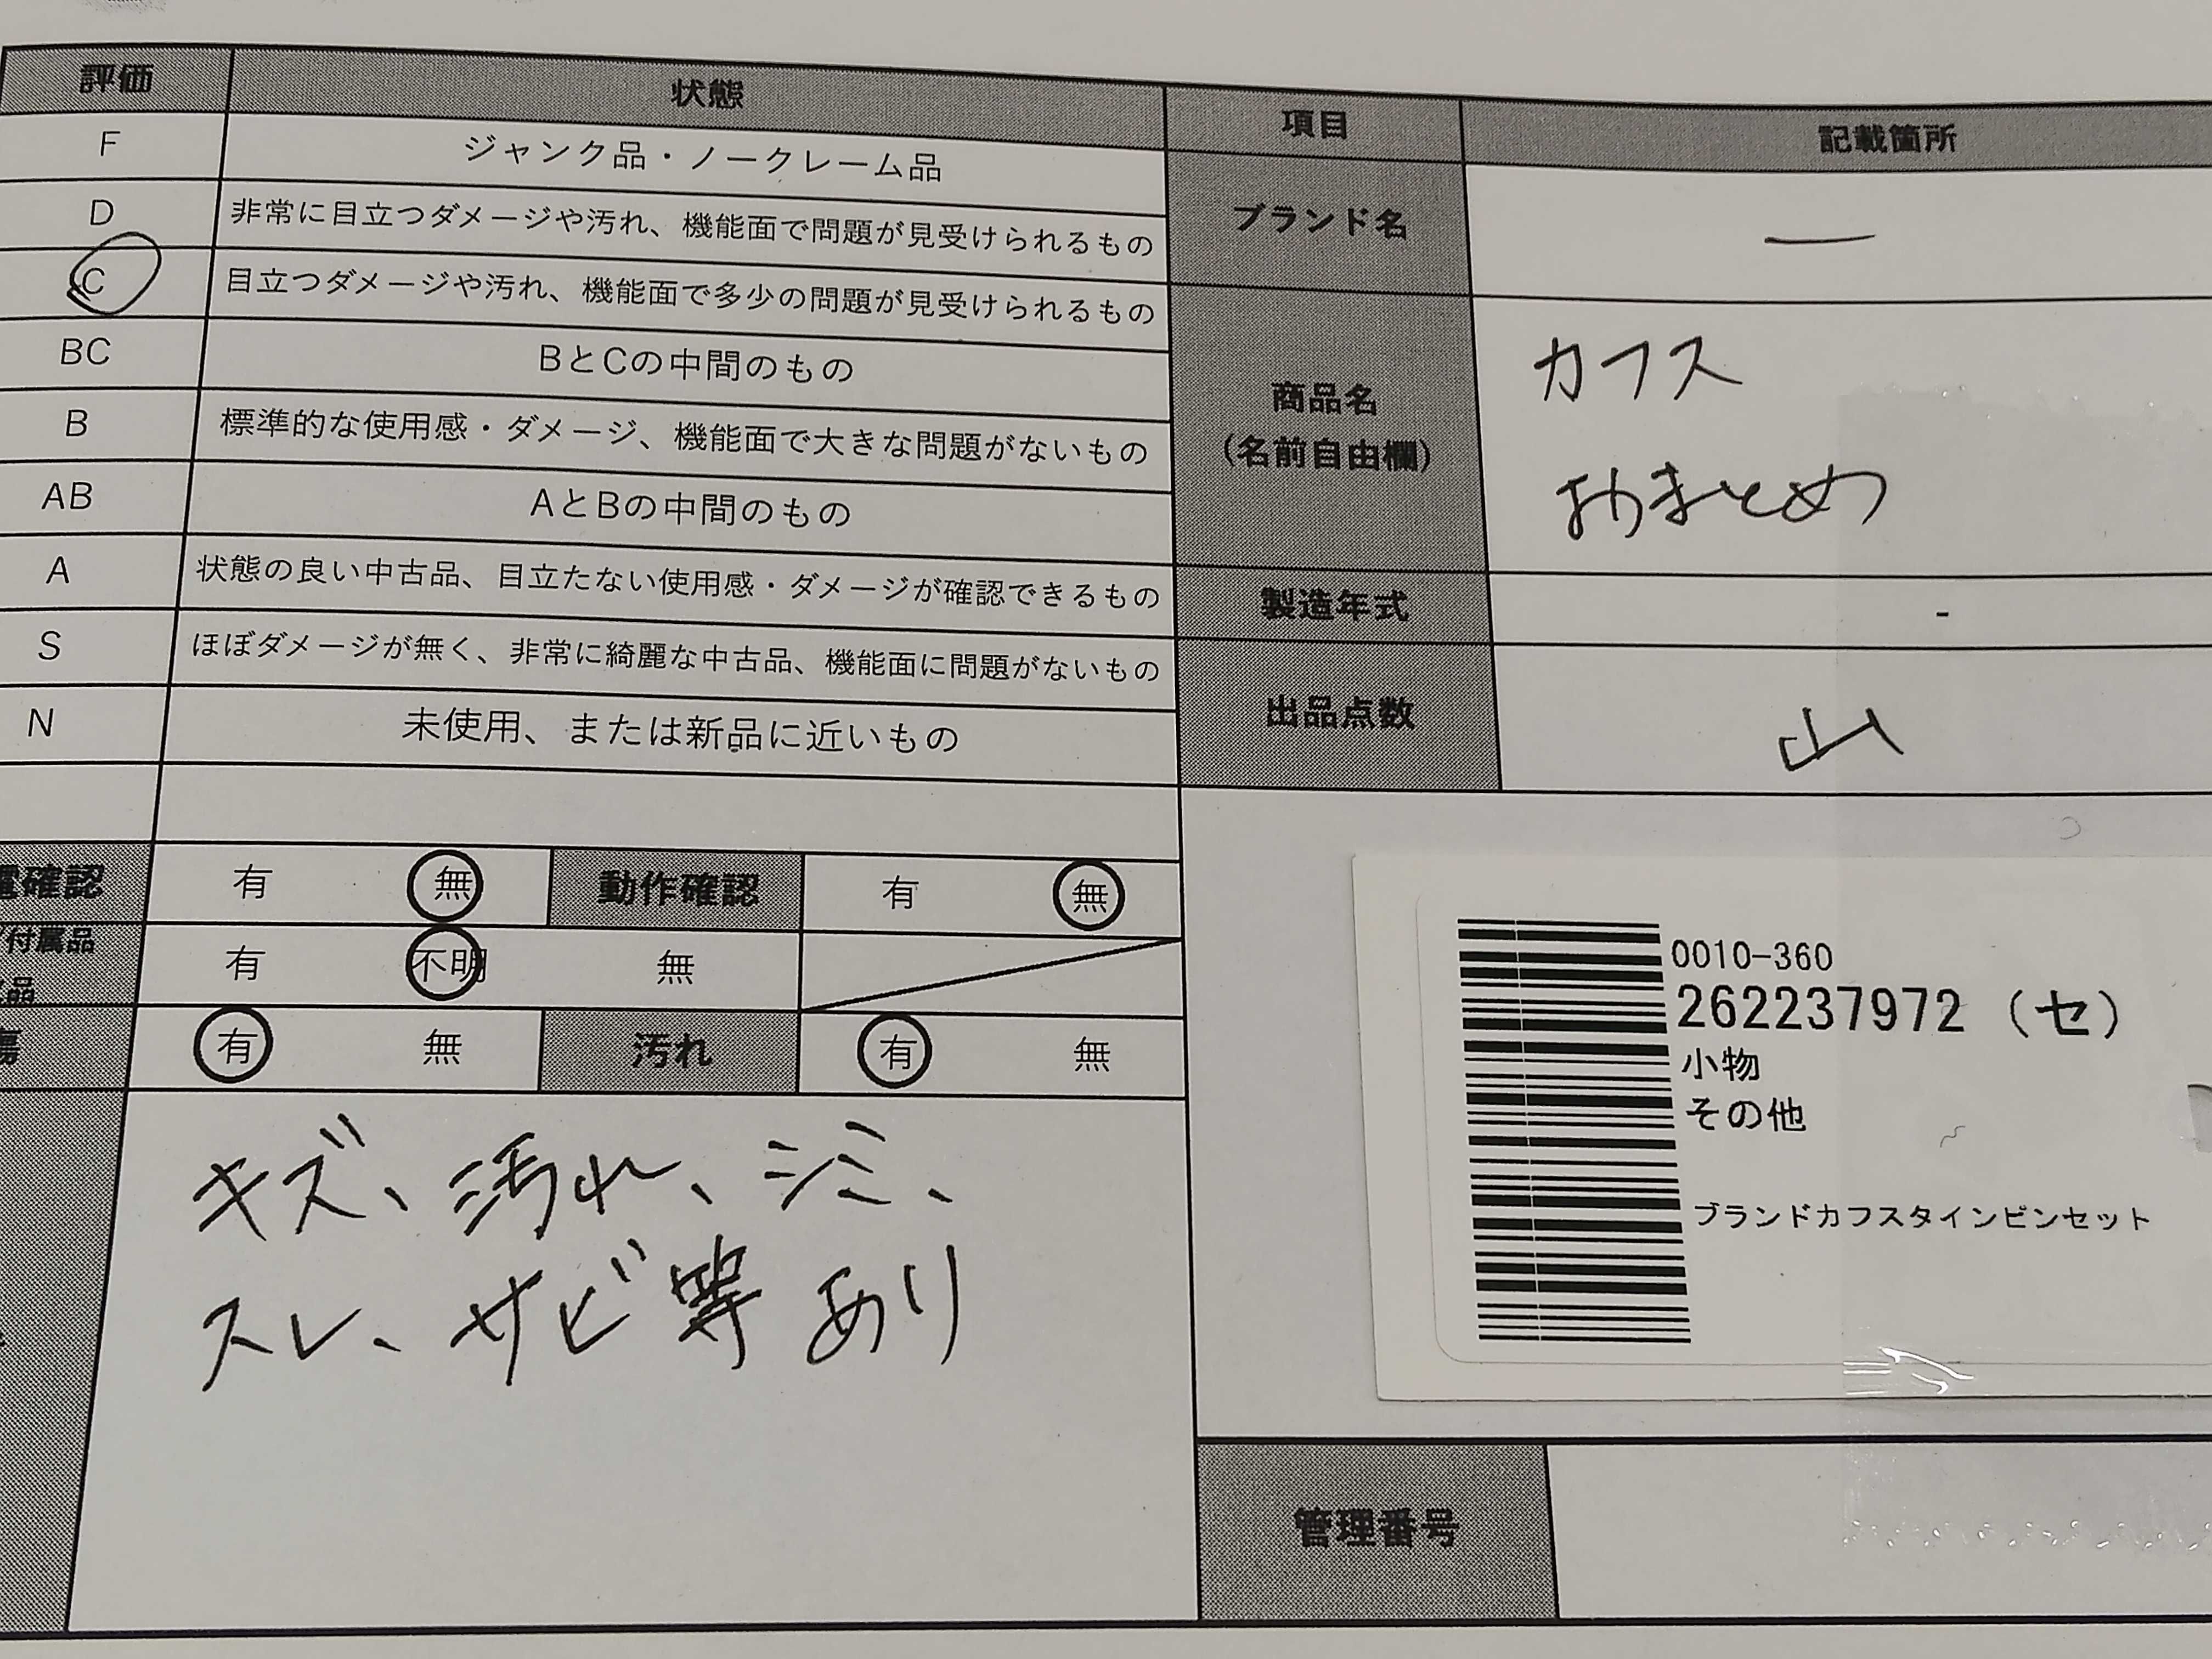 評価 状態
F ジャンク品・ノークレーム品
D 非常に目立つダメージや汚れ、機能面で問題が見受けられるもの
C 目立つダメージや汚れ、機能面で多少の問題が見受けられるもの
BC BとCの中間のもの
B 標準的な使用感・ダメージ、機能面で大きな問題がないもの
AB AとBの中間のもの
A 状態の良い中古品、目立たない使用感・ダメージが確認できるもの
S ほぼダメージが無く、非常に綺麗な中古品、機能面に問題がないもの
N 未使用、または新品に近いもの
確認 有 無 動作確認 有 無
付属品 有 不明 無
品
傷 有 無 汚れ 有 無
キズ、汚れ、シミ、
スレ、サビ等あり
項目 記載箇所
ブランド名 ー
商品名
(名前自由欄)
カフス
おまとめ
製造年式 -
出品点数 山
0010-360
262237972 (セ)
小物
その他
ブランドカフスタインピンセット
管理番号